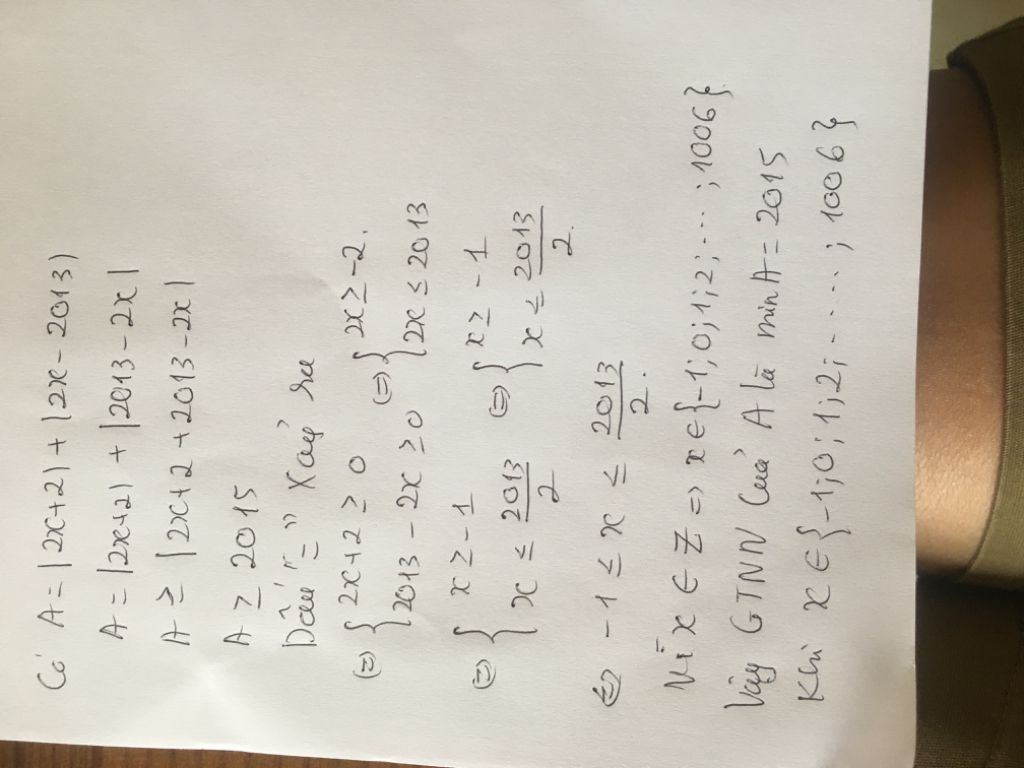 Có A = |2x+2| + |2x-2013|
A = |2x+2| + |2013-2x|
A ≥ |2x+2+2013-2x|
A ≥ 2015
Dấu "=" xảy ra
(=) { 2x+2 ≥ 0 (=) { 2x ≥ -2.
2013-2x ≥ 0 2x ≤ 2013
(=) { x ≥ -1 (=) { x ≥ -1
x ≤ 2013/2 x ≤ 2013/2.
(=) -1 ≤ x ≤ 2013/2.
Vì x ∈ Z => x ∈ {-1;0;1;2;...;1006}.
Vậy GTNN của A là min A = 2015
Khi x ∈ {-1;0;1;2;.....;1006}